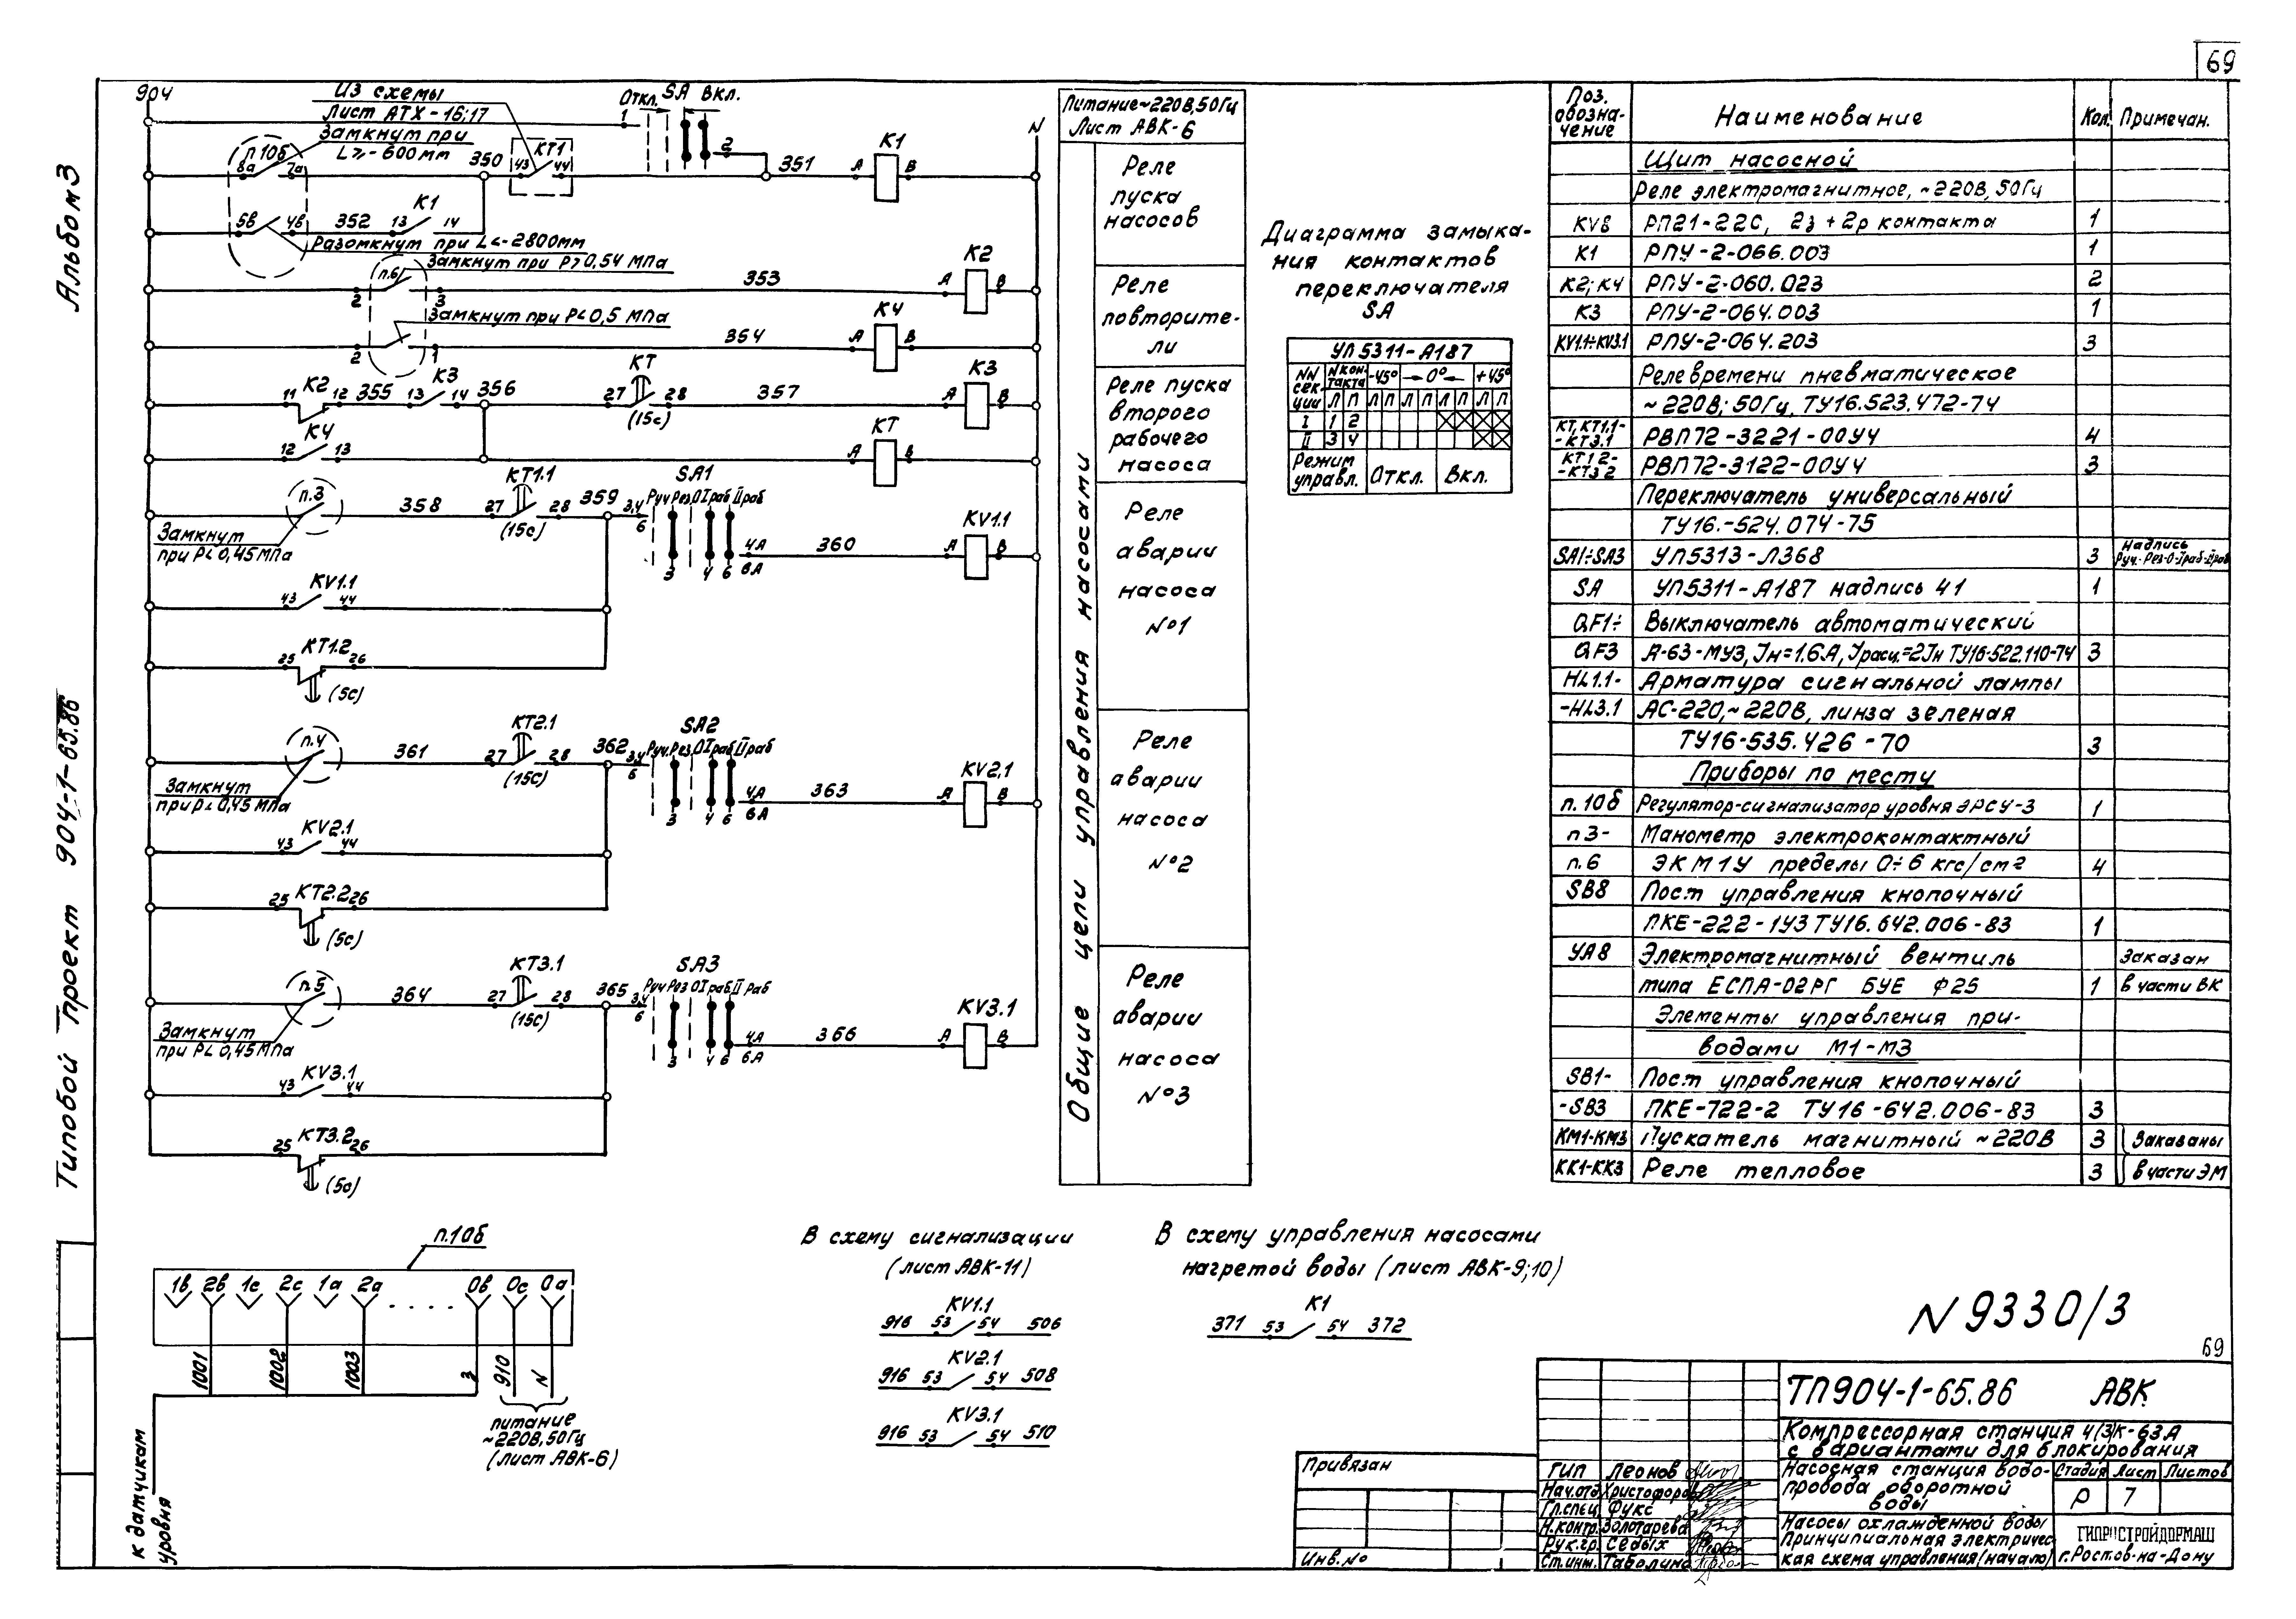 69
Альбом 3
Типовой проект 904-1-65.86
904
Из схемы
Лист АТХ-16;17
Замкнут при
L ≥ -600мм
Откл. SA Вкл.
1
2
п.10б
8а 7а
350
КТ1
43 44
351
А К1 В
N
5в 4в
352
К1
13 14
Разомкнут при L<-2800мм
Замкнут при P>0,54 МПа
п.6
2 3
353
А К2 В
Замкнут при P<0,5 МПа
2 1
354
А К4 В
11 К2 12
355
К3
13 14
356
КТ
27 28
(15с)
357
А К3 В
К4
12 13
А КТ В
п.3
358
КТ1.1
27 28
(15с)
359
3,4
6
SA1
Руч Рез О I раб II раб
3 4 6
4А
6А
360
А KV1.1 В
Замкнут
при P<0,45 МПа
KV1.1
43 44
КТ1.2
25 26
(5с)
п.4
361
КТ2.1
27 28
(15с)
362
3,4
6
SA2
Руч. Рез. О I раб II раб
3 4 6
4А
6А
363
А KV2.1 В
Замкнут
при P<0,45 МПа
KV2.1
43 44
КТ2.2
25 26
(5с)
п.5
364
КТ3.1
27 28
(15с)
365
3,4
6
SA3
Руч Рез О I раб II раб
3 4 6
4А
6А
366
А KV3.1 В
Замкнут
при P<0,45 МПа
KV3.1
43 44
КТ3.2
25 26
(5с)
Питание ~220В, 50Гц
Лист АВК-6
Общие цепи управления насосами
Реле
пуска
насосов
Реле
повторите-
ли
Реле пуска
второго
рабочего
насоса
Реле
аварии
насоса
№1
Реле
аварии
насоса
№2
Реле
аварии
насоса
№3
Диаграмма замыка-
ния контактов
переключателя
SA
УП5311-А187
NN секции
N контакта
-45° 0° +45°
Л П Л П Л П Л П Л П
I 1 2
II 3 4
Режим управл. Откл. Вкл.
Поз. обозна-чение Наименование Кол. Примечан.
Щит насосной
Реле электромагнитное, ~220В, 50Гц
KV8 РП21-22С, 2з + 2р контакта 1
К1 РПУ-2-066.003 1
К2; К4 РПУ-2-060.023 2
К3 РПУ-2-064.003 1
KV1.1÷KV3.1 РПУ-2-064.203 3
Реле времени пневматическое
~220В; 50Гц, ТУ16.523.472-74
КТ, КТ1.1-
-КТ3.1 РВП72-3221-00У4 4
КТ1.2-
-КТ3.2 РВП72-3122-00У4 3
Переключатель универсальный
ТУ16.-524.074-75
SA1÷SA3 УП5313-Л368 3 Надпись Руч.-Рез-О-Iраб-IIраб
SA УП5311-А187 надпись 41 1
QF1÷ Выключатель автоматический
QF3 А-63-МУ3, Iн=1.6А, Iрасц.=2Iн ТУ16-522.110-74 3
HL1.1- Арматура сигнальной лампы
-HL3.1 АС-220, ~220В, линза зеленая
ТУ16-535.426-70 3
Приборы по месту
п.10б Регулятор-сигнализатор уровня ЭРСУ-3 1
п3- Манометр электроконтактный
п.6 ЭКМ1У пределы 0÷6 кгс/см2 4
SB8 Пост управления кнопочный
ПКЕ-222-1У3 ТУ16.642.006-83 1
УА8 Электромагнитный вентиль Заказан
типа ЕСПА-02РГ БУЕ Ф25 1 в части ВК
Элементы управления при-
водами М1-М3
SB1- Пост управления кнопочный
-SB3 ПКЕ-722-2 ТУ16-642.006-83 3
КМ1-КМ3 Пускатель магнитный ~220В 3 Заказаны
КК1-КК3 Реле тепловое 3 в части ЭМ
п.10б
1в 2в 1с 2с 1а 2а ..... 0в 0с 0а
1001 1002 1003 3 910 N
питание
~220В, 50Гц
(лист АВК-6)
к датчикам
уровня
В схему сигнализации
(лист АВК-11)
KV1.1
916 53 54 506
KV2.1
916 53 54 508
KV3.1
916 53 54 510
В схему управления насосами
нагретой воды (лист АВК-9;10)
К1
371 53 54 372
N 9330/3
69
Привязан
Инв.№
ТП904-1-65.86 АВК
Компрессорная станция 4(3)К-63А
с вариантами для блокирования
ГИП Леонов
Нач.отд Христофоров
Гл.спец Фукс
Н.контр. Золотарева
Рук.гр. Седых
Ст.инж. Таболина
Насосная станция водо-
провода оборотной
воды
Стадия Лист Листов
Р 7
Насосы охлажденной воды
Принципиальная электричес-
кая схема управления (начало)
ГИПРОСТРОЙДОРМАШ
г.Ростов-на-Дону